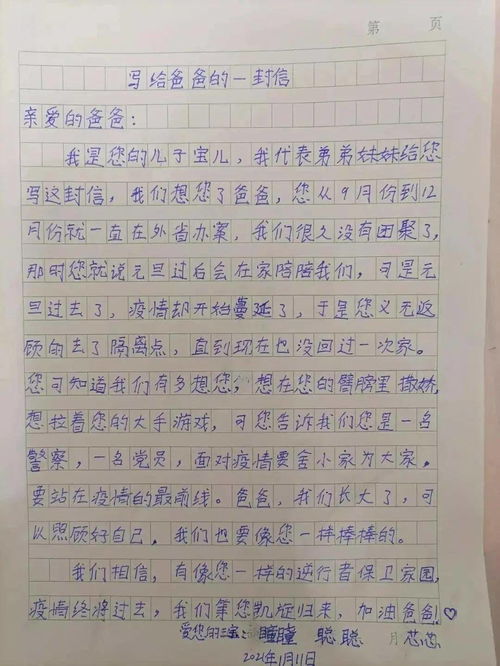 第 页
写给爸爸的一封信
亲爱的爸爸：
我是您的儿子宝儿，我代表弟弟妹妹给您
写这封信，我们想您了爸爸，您从9月份到12
月份就一直在外省办案，我们很久没有团聚了，
那时您就说元旦过后会在家陪陪我们，可是元
旦过去了，疫情却开始蔓延了，于是您义无返
顾的去了隔离点，直到现在也没回过一次家。
您可知道我们有多想您，想在您的臂膀里撒娇，
想拉着您的大手游戏，可您告诉我们您是一名
警察，一名党员，面对疫情要舍小家为大家，
要站在疫情的最前线。爸爸，我们长大了，可
以照顾好自己，我们也要像您一样棒棒的。
我们相信，有像您一样的逆行者保卫家园，
疫情终将过去，我们等您凯旋归来，加油爸爸！♡
爱您的三宝： 瞳瞳 聪聪 芯芯
月
2021年1月11日